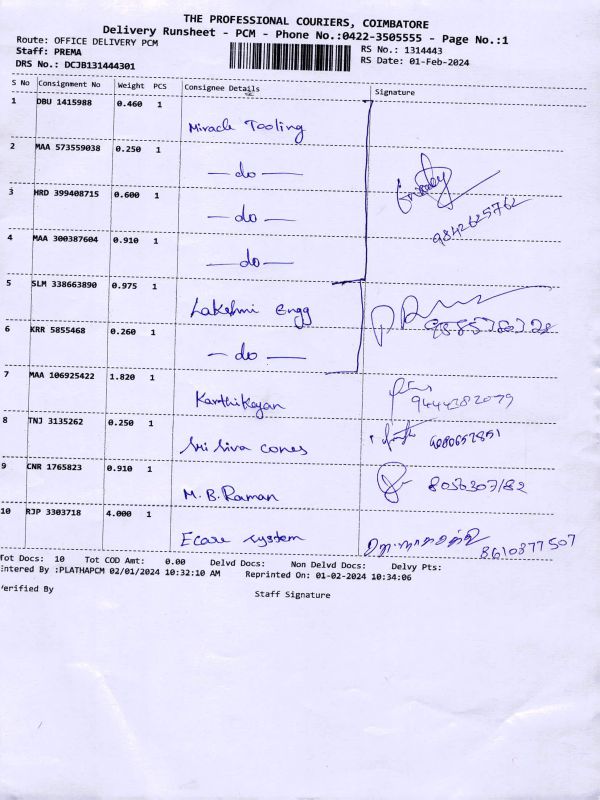 THE PROFESSIONAL COURIERS, COIMBATORE
Delivery Runsheet - PCM - Phone No.:0422-3505555 - Page No.:1
Route: OFFICE DELIVERY PCM
RS No.: 1314443
Staff: PREMA
RS Date: 01-Feb-2024
DRS No.: DCJB131444301
S No Consignment No Weight PCS Consignee Details Signature
1 DBU 1415988 0.460 1 Miracle Tooling
2 MAA 573559038 0.250 1 — do —
3 HRD 399408715 0.600 1 — do —
9842625762
4 MAA 300387604 0.910 1 — do —
5 SLM 338663890 0.975 1 Lakshmi Engg
6 KRR 5855468 0.260 1 — do —
7 MAA 106925422 1.820 1 Karthikeyan 9444282079
8 TNJ 3135262 0.250 1 Sri Siva Cones
9 CNR 1765823 0.910 1 M.B.Raman
10 RJP 3303718 4.000 1 Ecare System 8610377507
Tot Docs: 10 Tot COD Amt: 0.00 Delvd Docs: Non Delvd Docs: Delvy Pts:
Entered By :PLATHAPCM 02/01/2024 10:32:10 AM Reprinted On: 01-02-2024 10:34:06
Verified By
Staff Signature